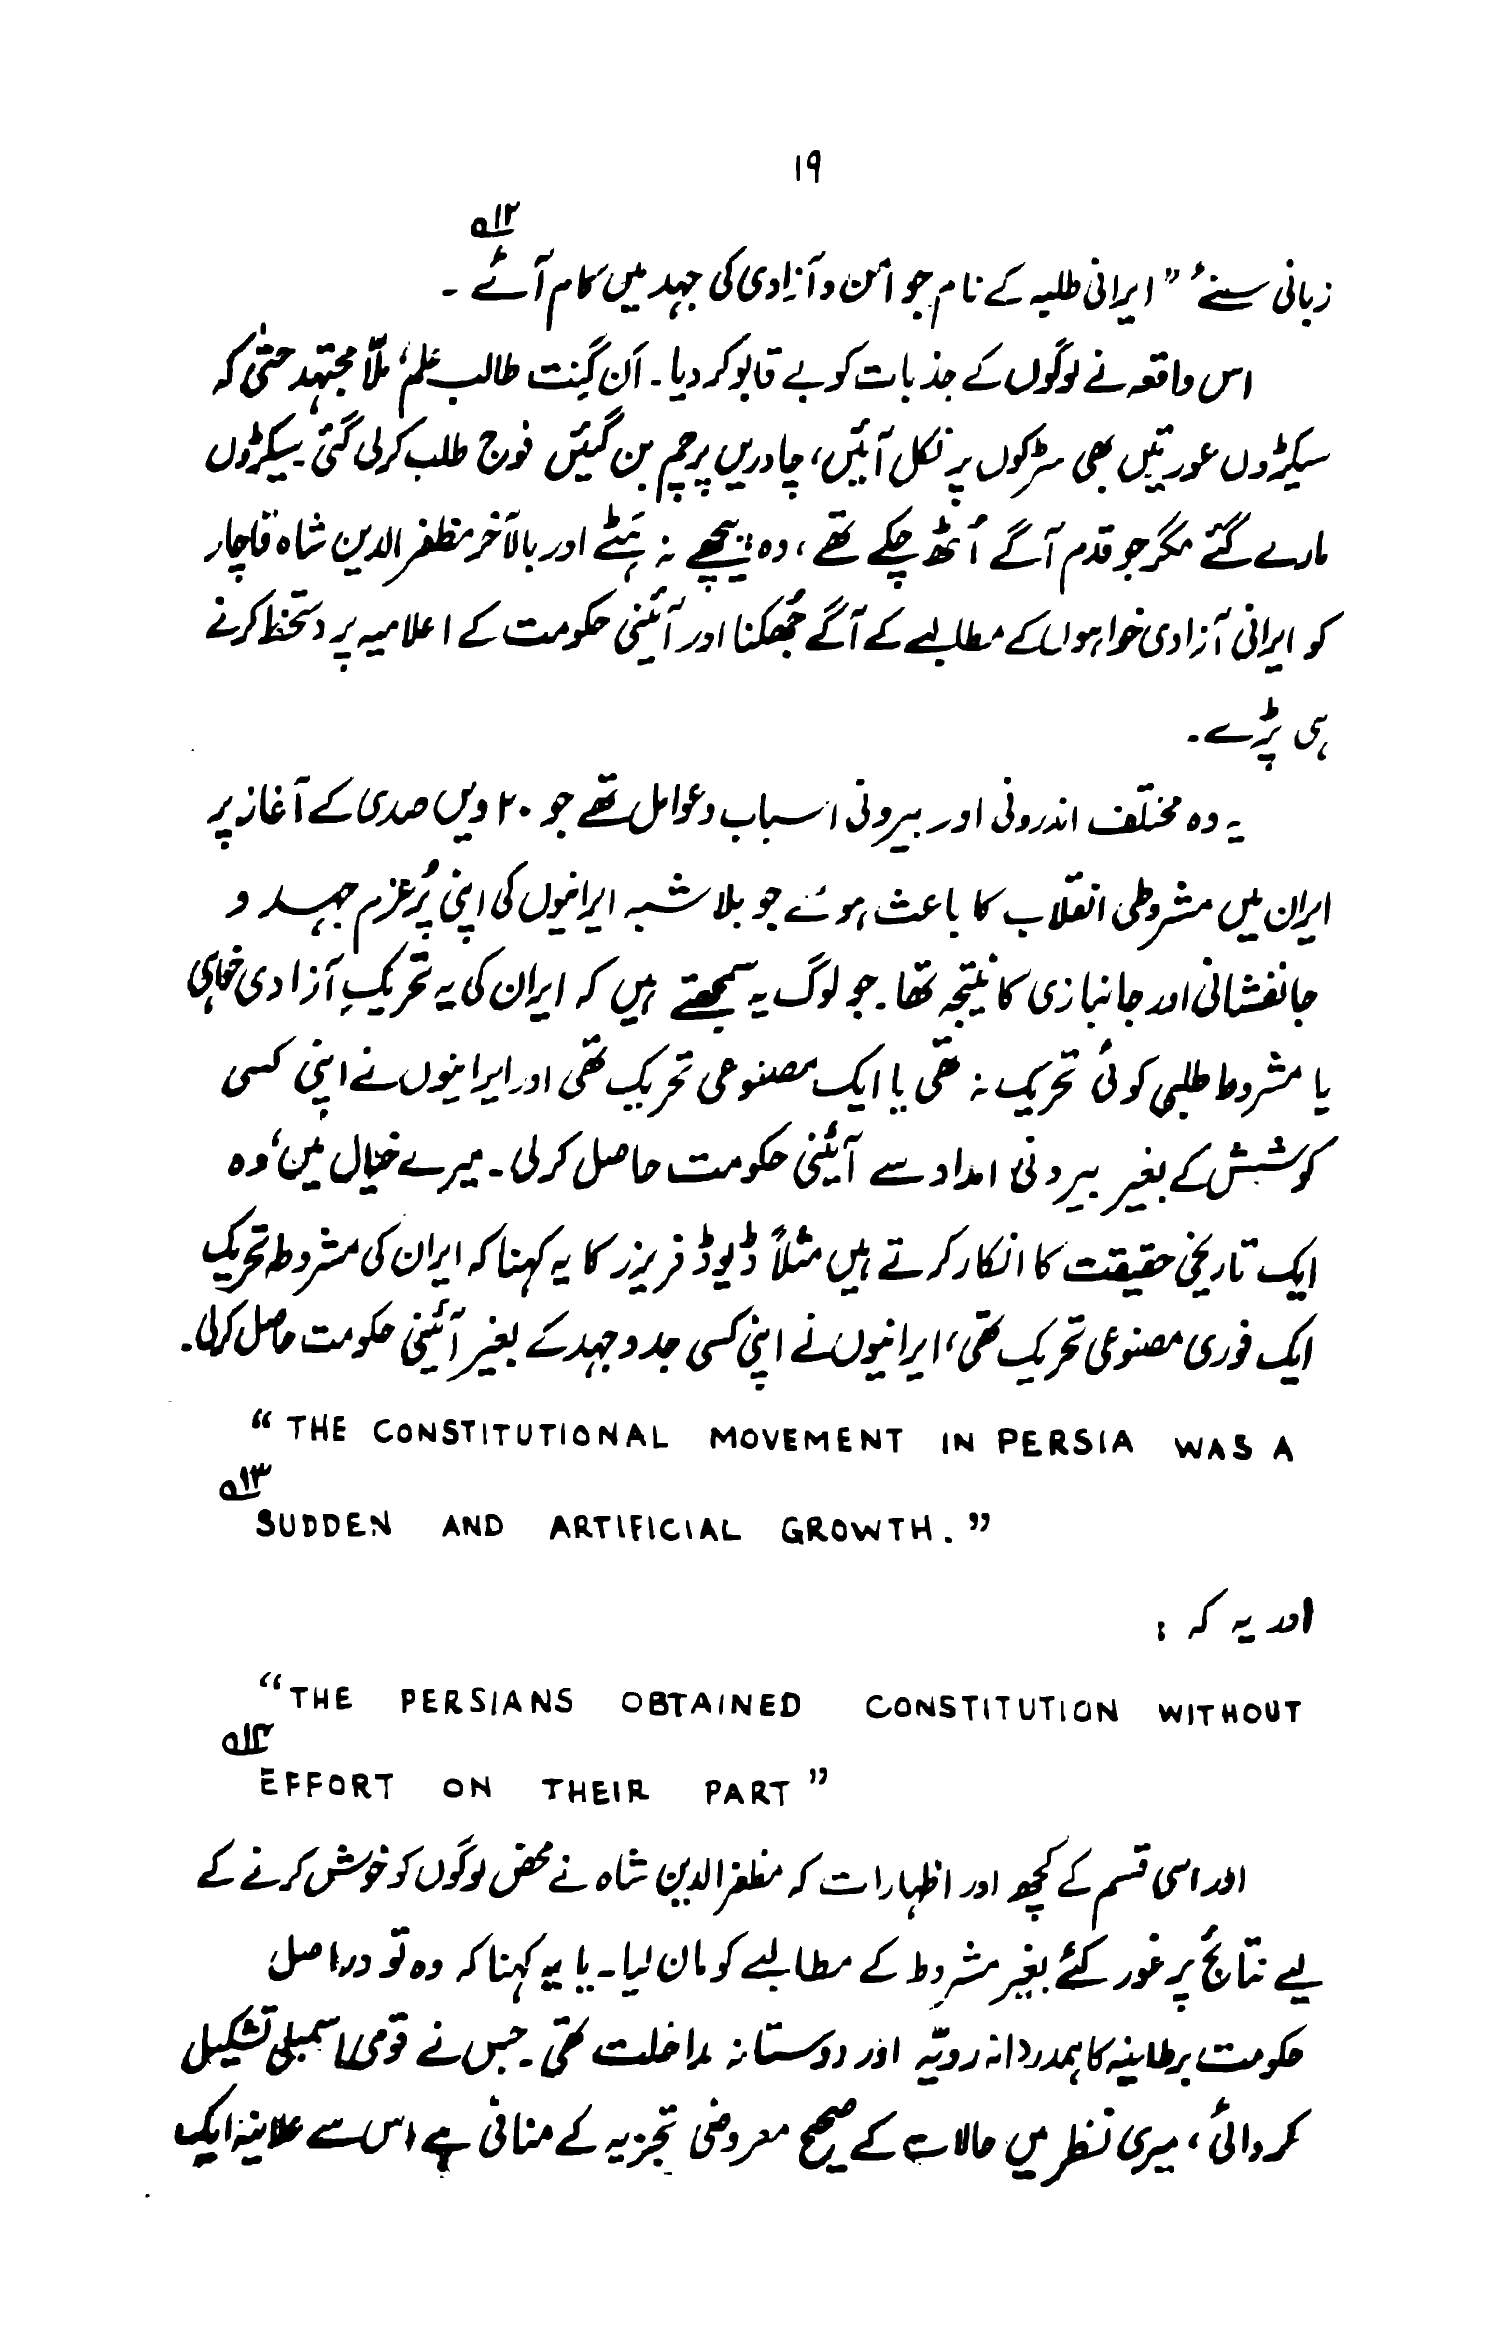 ۱۹
زبانی سنئے ” ایرانی طلبہ کے نام جو امن و آزادی کی جہد میں کام آئے ۔ ۱۲ھ
اس واقعہ نے لوگوں کے جذبات کو بے قابو کر دیا ۔ اَن گنت طالب علم، ملّا مجتہد حتیٰ کہ
سیکڑوں عورتیں بھی سڑکوں پر نکل آئیں، چادریں پرچم بن گئیں فوج طلب کر لی گئی ۔ سیکڑوں
مارے گئے مگر جو قدم آگے اُٹھ چکے تھے ، وہ پیچھے نہ ہَٹے اور بالآخر مظفر الدین شاہ قاچار
کو ایرانی آزادی خواہوں کے مطالبے کے آگے جُھکنا اور آئینی حکومت کے اعلامیہ پر دستخط کرنے
ہی پڑے ۔
یہ وہ مختلف اندرونی اور بیرونی اسباب و عوامل تھے جو ۲۰ ویں صدی کے آغاز پر
ایران میں مشروطی انقلاب کا باعث ہوئے جو بلا شبہ ایرانیوں کی اپنی پُر عزم جہد و
جانفشانی اور جانبازی کا نتیجہ تھا ۔ جو لوگ یہ سمجھتے ہیں کہ ایران کی یہ تحریکِ آزادی خواہی
یا مشروطہ طلبی کوئی تحریک نہ تھی یا ایک مصنوعی تحریک تھی اور ایرانیوں نے اپنی کسی
کوشش کے بغیر بیرونی امداد سے آئینی حکومت حاصل کر لی ۔ میرے خیال میں، وہ
ایک تاریخی حقیقت کا انکار کرتے ہیں مثلاً ڈیوڈ فریزر کا یہ کہنا کہ ایران کی مشروطہ تحریک
ایک فوری مصنوعی تحریک تھی، ایرانیوں نے اپنی کسی جد و جہد کے بغیر آئینی حکومت حاصل کر لی ۔
“ THE CONSTITUTIONAL MOVEMENT IN PERSIA WAS A
SUDDEN AND ARTIFICIAL GROWTH. ” ۱۳ھ
اور یہ کہ :
“ THE PERSIANS OBTAINED CONSTITUTION WITHOUT
EFFORT ON THEIR PART ” ۱۴ھ
اور اسی قسم کے کچھ اور اظہارات کہ مظفر الدین شاہ نے محض لوگوں کو خوش کرنے کے
لیے نتائج پر غور کئے بغیر مشروطہ کے مطالبے کو مان لیا ۔ یا یہ کہنا کہ وہ تو دراصل
حکومت برطانیہ کا ہمدردانہ رویّہ اور دوستانہ مداخلت تھی ۔ جس نے قومی اسمبلی تشکیل
کروائی ، میری نظر میں حالات کے صحیح معروضی تجزیہ کے منافی ہے اس سے علانیہ ایک